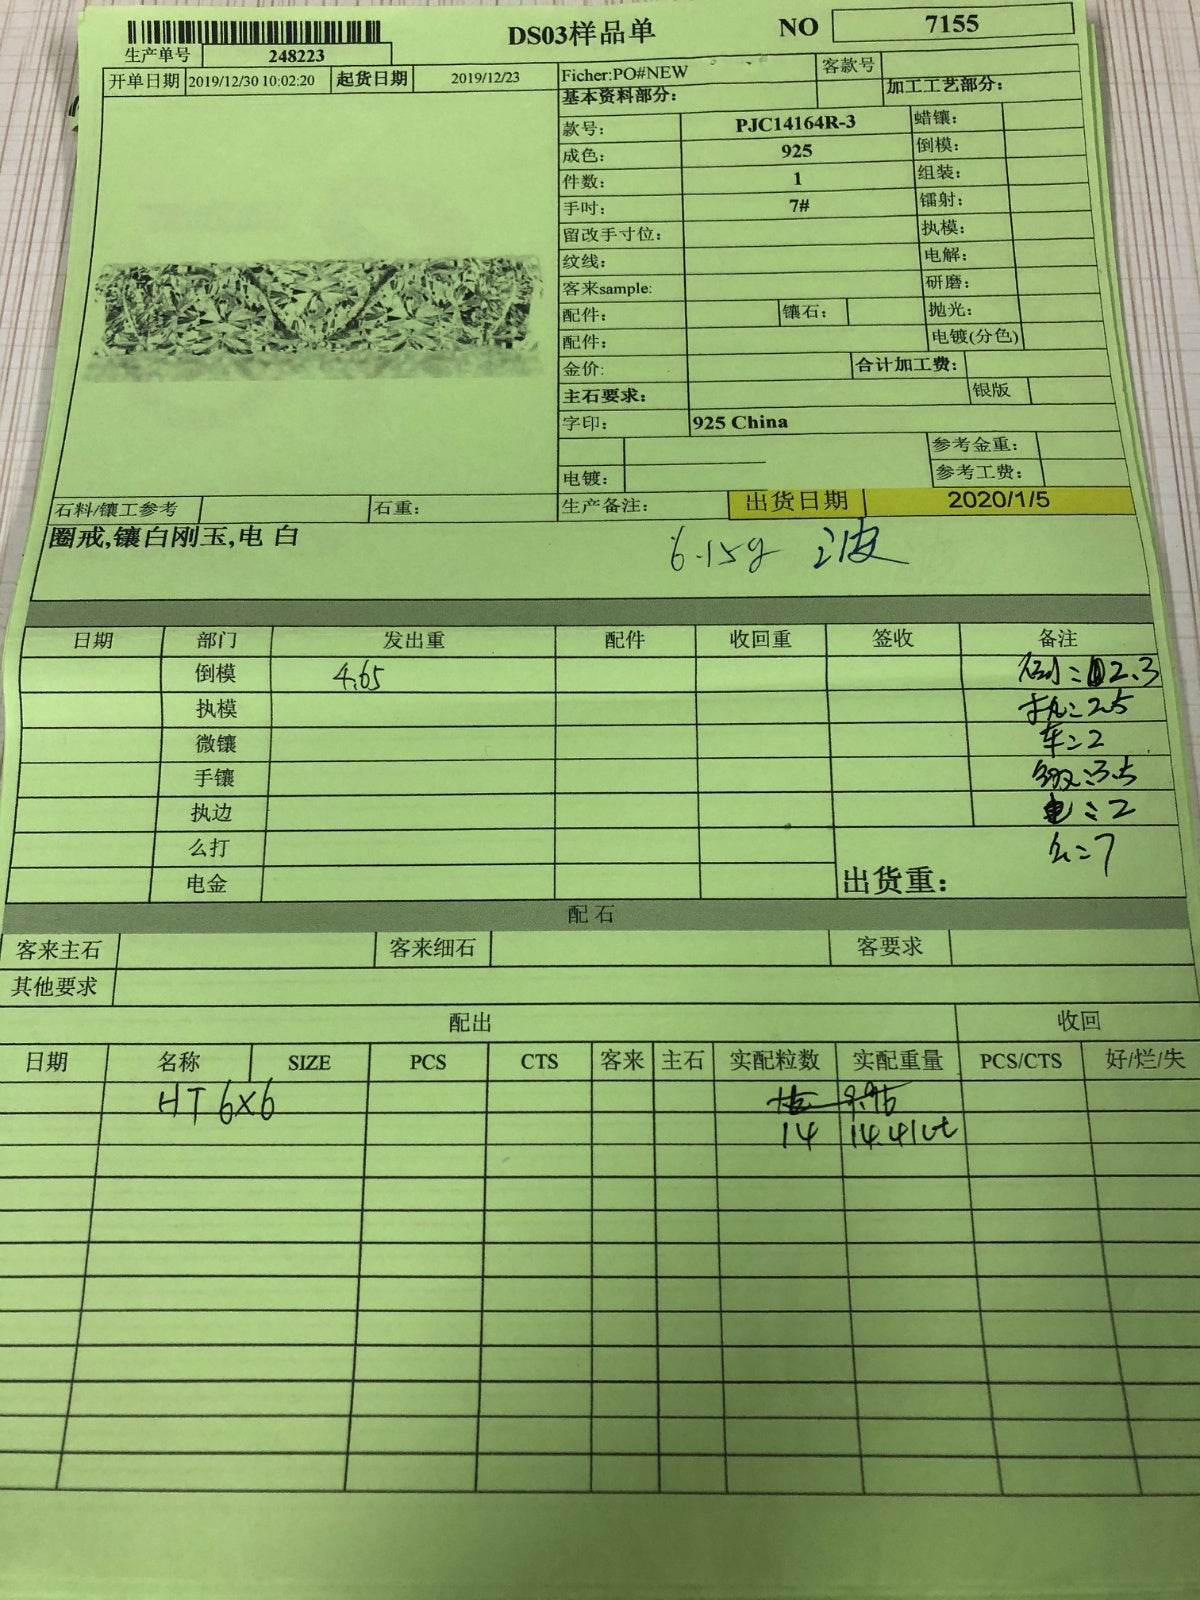 DS03样品单 NO 7155
生产单号 248223
开单日期 2019/12/30 10:02:20 起货日期 2019/12/23 Ficher:PO#NEW 客款号
基本资料部分: 加工工艺部分:
款号: PJC14164R-3 蜡镶:
成色: 925 倒模:
件数: 1 组装:
手吋: 7# 镭射:
留改手寸位: 执模:
纹线: 电解:
客来sample: 研磨:
配件: 镶石: 抛光:
配件: 电镀(分色)
金价: 合计加工费:
主石要求: 银版
字印: 925 China
参考金重:
电镀: 参考工费:
石料/镶工参考 石重: 生产备注: 出货日期 2020/1/5
圈戒,镶白刚玉,电 白
6.15g
日期 部门 发出重 配件 收回重 签收 备注
倒模 4.65 2.3
执模 执:2.5
微镶 车:2
手镶 3.5
执边 电:2
么打 7
电金 出货重:
配 石
客来主石 客来细石 客要求
其他要求
配出 收回
日期 名称 SIZE PCS CTS 客来 主石 实配粒数 实配重量 PCS/CTS 好/烂/失
HT 6×6 9.95
14 14.41ct